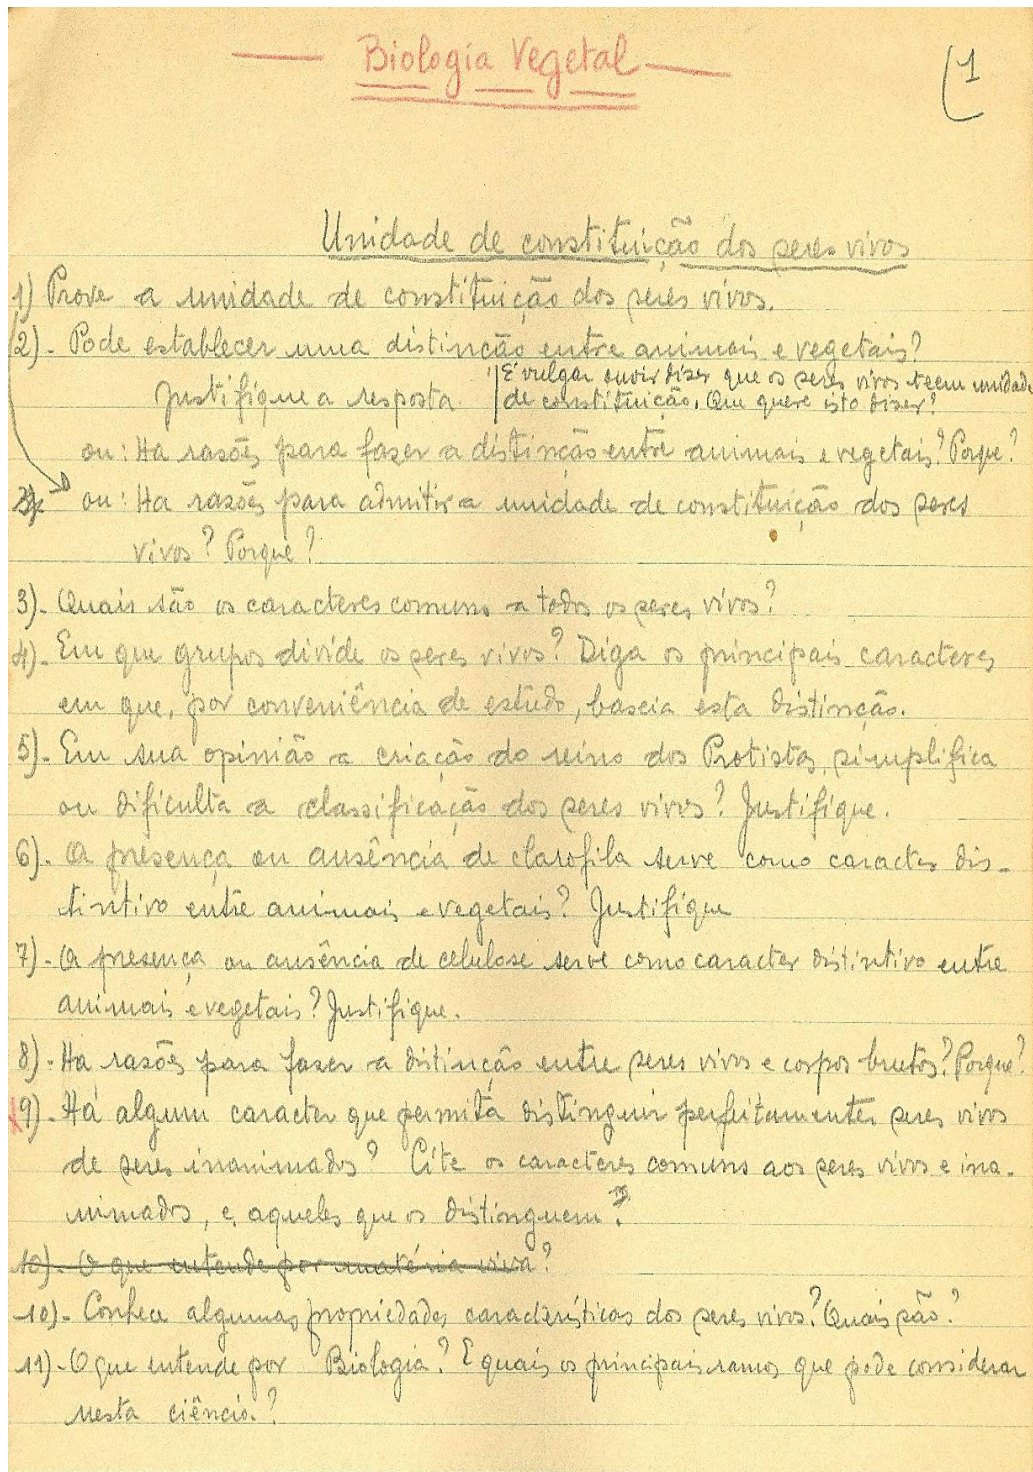 Biologia Vegetal
1
Unidade de constituição dos seres vivos
1) Prove a unidade de constituição dos seres vivos.
2). Pode establecer uma distinção entre animais e vegetais?
Justifique a resposta
É vulgar ouvir dizer que os seres vivos teem unidade
de constituição. Que quere isto dizer?
ou: Ha rasões para fazer a distinção entre animais e vegetais? Porque?
ou: Ha razões para admitir a unidade de constituição dos seres
vivos? Porque?
3). Quais são os caracteres comuns a todos os seres vivos?
4). Em que grupos divide os seres vivos? Diga os principais caracteres
em que, por conveniência de estudo, baseia esta distinção.
5). Em sua opinião a criação do reino dos Protistas, simplifica
ou dificulta a classificação dos seres vivos? Justifique.
6). A presença ou ausência de clorofila serve como caracter dis-
tintivo entre animais e vegetais? Justifique
7). A presença ou ausência de celulose serve como caracter distintivo entre
animais e vegetais? Justifique.
8). Ha rasões para fazer a distinção entre seres vivos e corpos brutos? Porque?
9). Há algum caracter que permita distinguir perfeitamente seres vivos
de seres inanimados? Cite os caracteres comuns aos seres vivos e ina-
nimados, e aqueles que os distinguem?
10). O que entende por matéria viva?
10). Conhece algumas propriedades características dos seres vivos? Quais são?
11). O que entende por Biologia? E quais os principais ramos que pode considerar
nesta ciência?